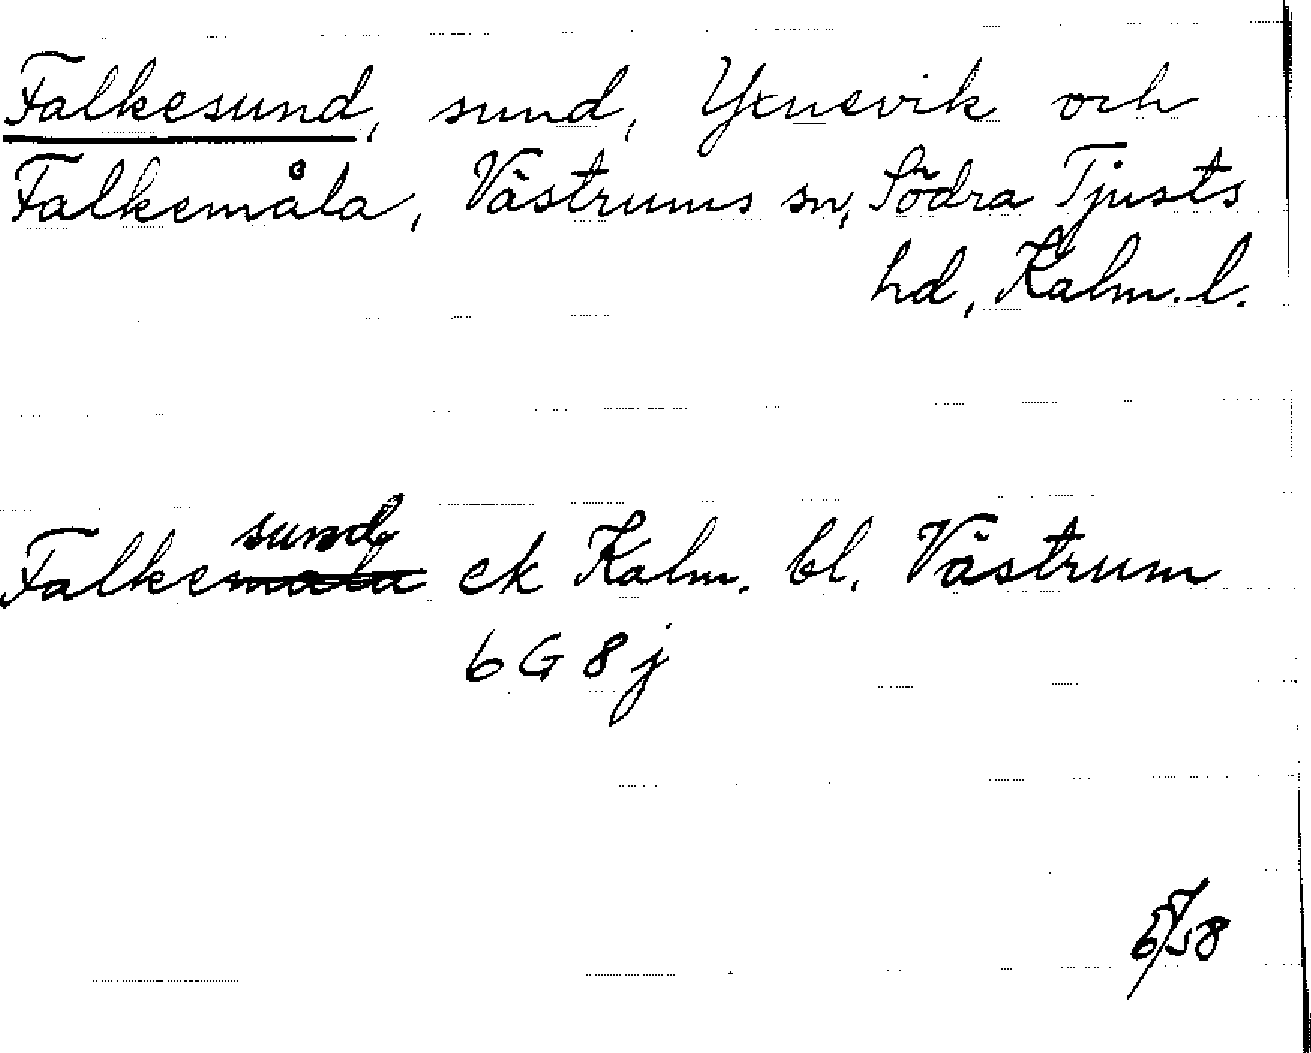 Falkesund, sund, Yxnevik och
Falkemåla, Västrums sn, Södra Tjusts
hd, Kalm. l.
sund
Falkemåla ek Kalm. bl. Västrum
6 G 8 j